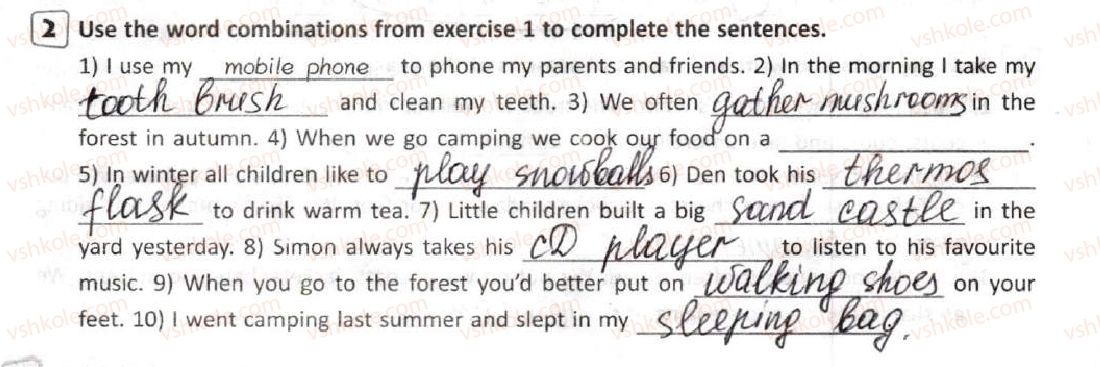 2 Use the word combinations from exercise 1 to complete the sentences.
1) I use my mobile phone to phone my parents and friends. 2) In the morning I take my
tooth brush and clean my teeth. 3) We often gather mushrooms in the
forest in autumn. 4) When we go camping we cook our food on a ____________.
5) In winter all children like to play snowballs 6) Den took his thermos
flask to drink warm tea. 7) Little children built a big sand castle in the
yard yesterday. 8) Simon always takes his CD player to listen to his favourite
music. 9) When you go to the forest you'd better put on walking shoes on your
feet. 10) I went camping last summer and slept in my sleeping bag.